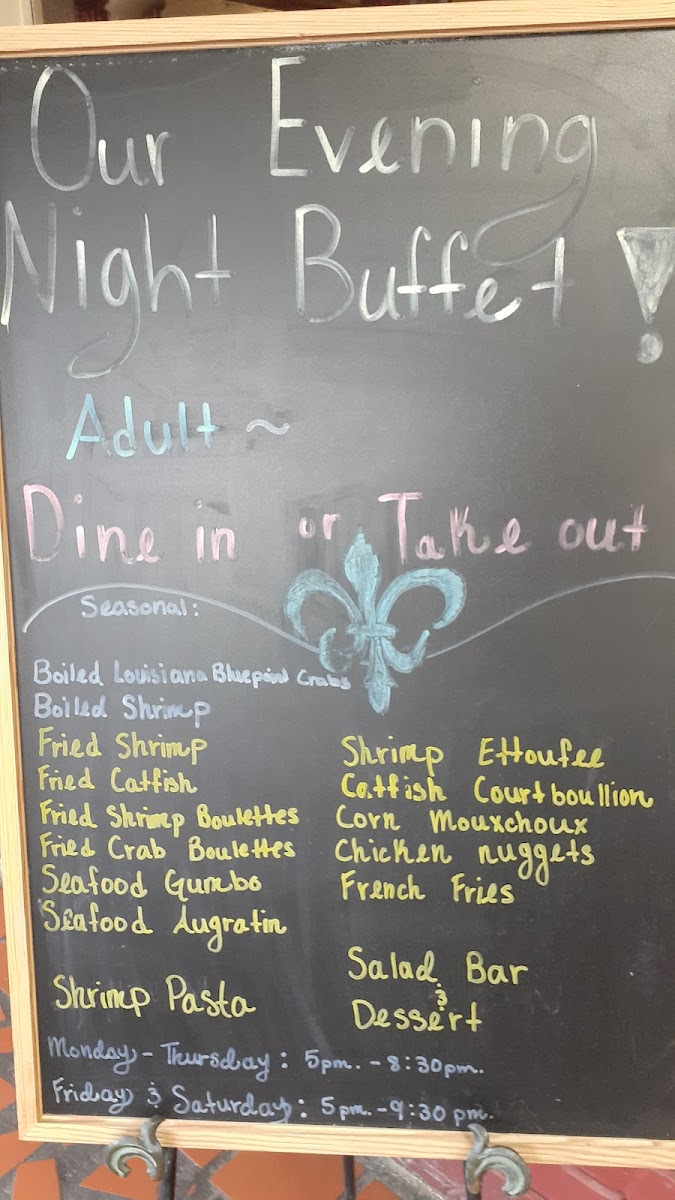 Our Evening
Night Buffet!
Adult ~
Dine in or Take out
Seasonal:
Boiled Louisiana Bluepoint Crabs
Boiled Shrimp
Fried Shrimp
Fried Catfish
Fried Shrimp Boulettes
Fried Crab Boulettes
Seafood Gumbo
Seafood Augratin
Shrimp Pasta
Shrimp Ettoufee
Catfish Courtboullion
Corn Mouxchoux
Chicken nuggets
French Fries
Salad Bar
&
Dessert
Monday - Thursday: 5pm. - 8:30pm.
Friday & Saturday: 5pm. - 9:30 pm.